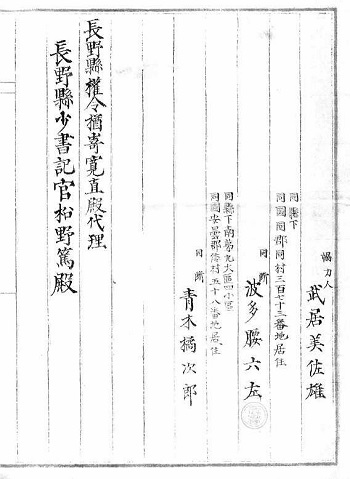 協力人
武居美佐雄
同縣下
同國同郡同村三百七十三番地居住
同断
波多腰六左
同縣下南第九大區四小區
同國安曇郡倭村五十八番地居住
同断
青木橘次郎
長野縣權令楢崎寛直殿代理
長野縣少書記官柏野篤殿